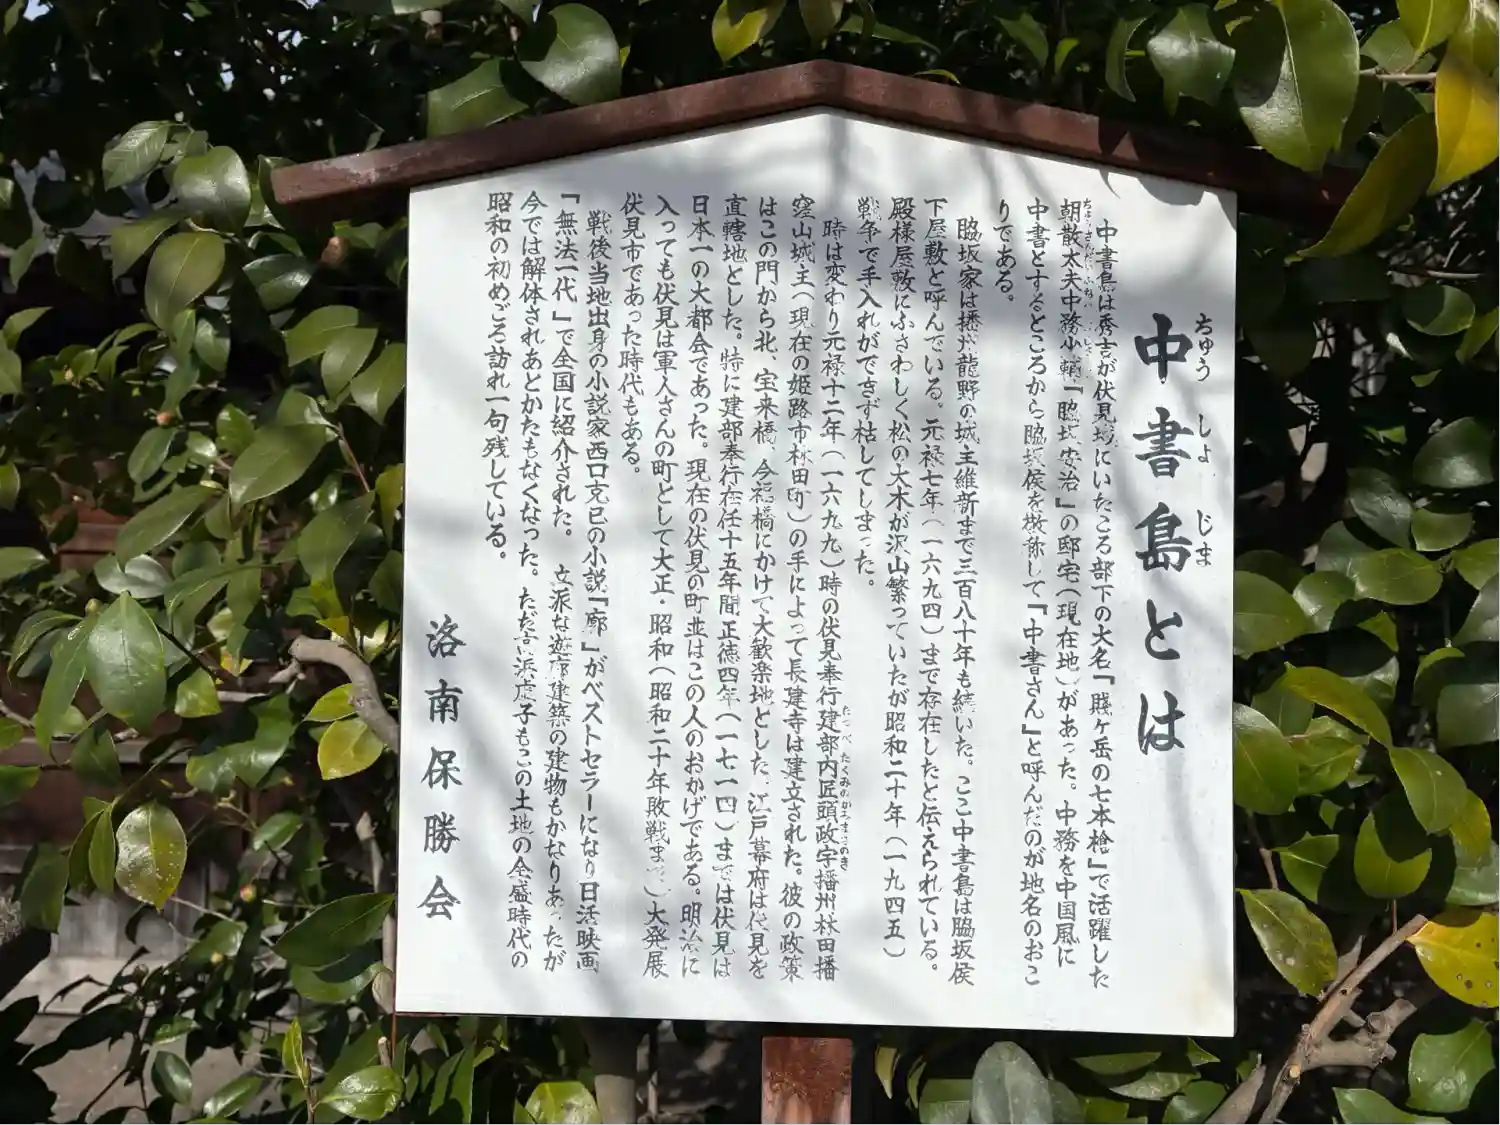 中書島とは
ちゅう しょ じま
中書島は秀吉が伏見城にいたころ部下の大名「賤ヶ岳の七本槍」で活躍した
朝散太夫中務少輔「脇坂安治」の邸宅(現在地)があった。中務を中国風に
中書とするところから脇坂侯を敬称して「中書さん」と呼んだのが地名のおこ
りである。
脇坂家は播州龍野の城主維新まで三百八十年も続いた。ここ中書島は脇坂侯
下屋敷と呼んでいる。元禄七年(一六九四)まで存在したと伝えられている。
殿様屋敷にふさわしく松の大木が沢山繁っていたが昭和二十年(一九四五)
戦争で手入れができず枯してしまった。
時は変わり元禄十二年(一六九九)時の伏見奉行建部内匠頭政宇播州林田播
たつべ たくみのかみまさのき
窪山城主(現在の姫路市林田町)の手によって長建寺は建立された。彼の政策
はこの門から北、宝来橋、今福橋にかけて大歓楽地とした。江戸幕府は伏見を
直轄地とした。特に建部奉行在任十五年間正徳四年(一七一四)までは伏見は
日本一の大都会であった。現在の伏見の町並はこの人のおかげである。明治に
入っても伏見は軍人さんの町として大正・昭和(昭和二十年敗戦まで)大発展
伏見市であった時代もある。
戦後当地出身の小説家西口克己の小説「廓」がベストセラーになり日活映画
「無法一代」で全国に紹介された。立派な遊廓建築の建物もかなりあったが
今では解体されあとかたもなくなった。ただ高浜虚子もこの土地の全盛時代の
昭和の初めごろ訪れ一句残している。
洛南保勝会